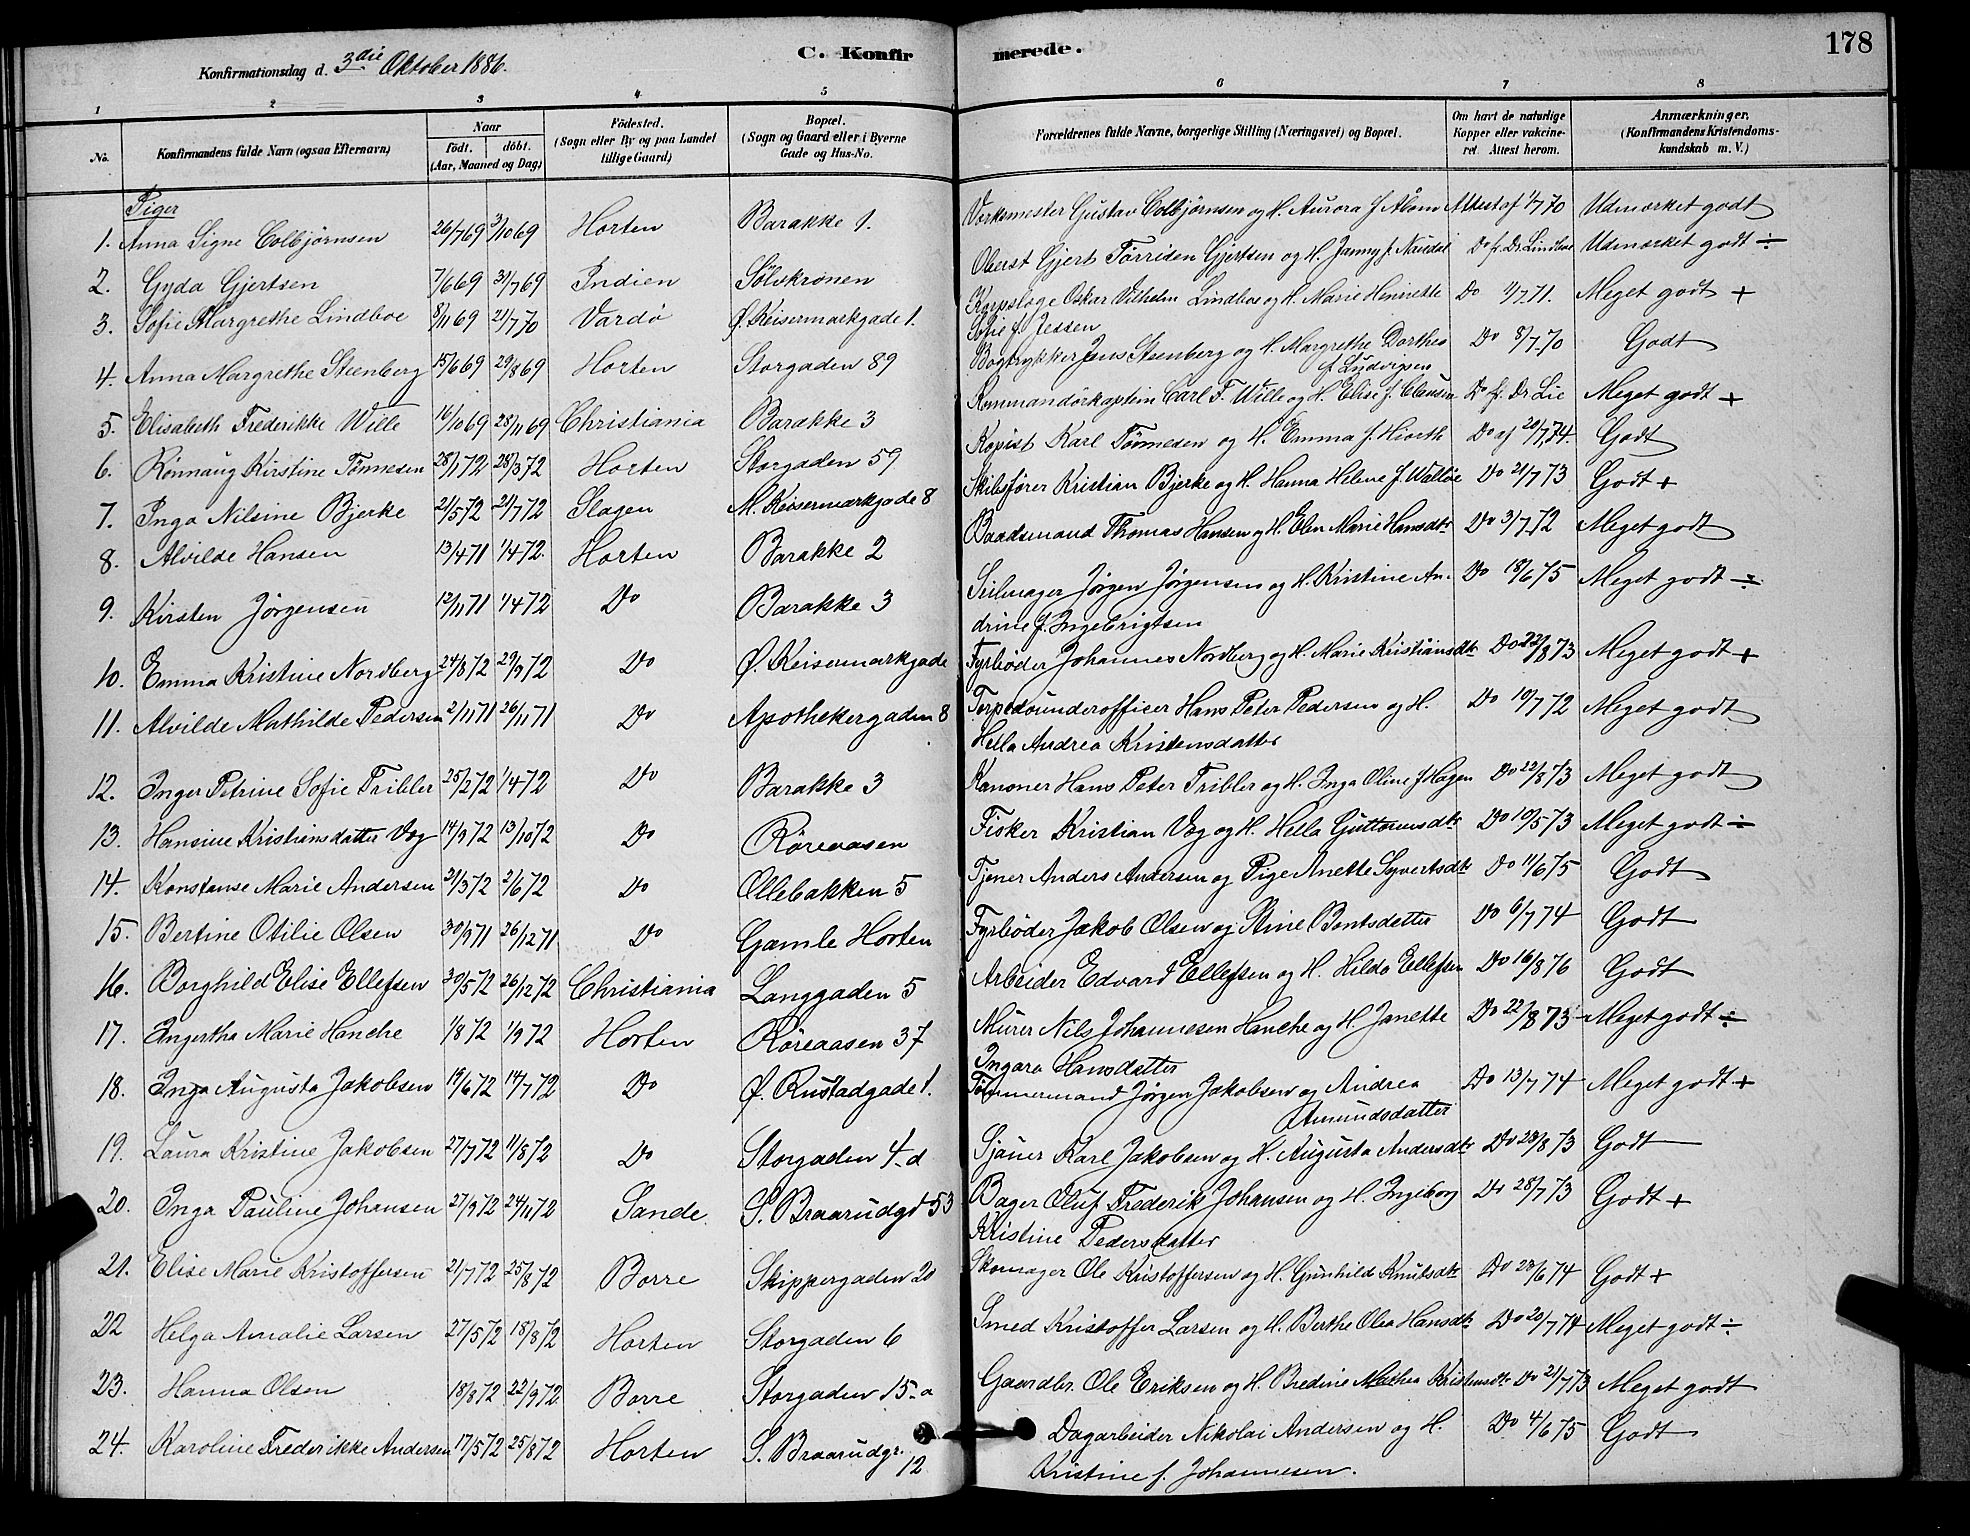 178
C. Konfirmerede.
Konfirmationsdag d. 3die Oktober 1886.
1 2 3 4 5 6 7 8
No. Konfirmandens fulde Navn (ogsaa Efternavn) Naar født. døbt. (Aar, Maaned og Dag) Fødested. (Sogn eller By og paa Landet tillige Gaard) Bopæl. (Sogn og Gaard eller i Byerne Gade og Hus-No. Forældrenes fulde Navne, borgerlige Stilling (Næringsvei) og Bopæl. Om havt de naturlige Kopper eller vakcineret. Attest herom. Anmærkninger. (Konfirmandens Kristendomskundskab m. V.)
Piger
1. Anna Signe Colbjørnsen 26/7 69 3/10 69 Horten Barakke 1. Værksmester Gustav Colbjørnsen og H. Aurora f. Attest af 1/7 70 Udmærket godt
2. Gyda Gjertsen 7/6 69 31/7 69 Indien Sølvkronen Oberst Gjert Törriden Gjertsen og H. Janny f. Do fr. Dr. Lindboe Udmærket godt ÷
3. Sofie Margrethe Lindboe 8/11 69 21/7 70 Vardø Ø. Keisermarkgade 1. Korpslæge Oskar Vilhelm Lindboe og H. Marie Henriette Sofie f. Jessen Do 11/7 71. Meget godt +
4. Anna Margrethe Steenberg 15/6 69 29/8 69 Horten Storgaden 89 Bogtrykker Jens Steenberg og H. Margrethe Dorthea f. Ludvigsen Do 8/7 70 Godt
5. Elisabeth Frederikke Wille 16/10 69 28/11 69 Christiania Barakke 3 Kommandørkaptein Carl F. Wille og H. Elise f. Clausen Do fr. Dr. Lie Meget godt +
6. Rönnaug Kirstine Tönnesen 28/1 72 28/3 72 Horten Storgaden 59 Kopist Karl Tönnesen og H. Emma f. Hiorth Do af 20/7 74. Godt
7. Inga Nilsine Bjerke 21/5 72 21/7 72 Slagen M. Keisermarkgade 8 Skibsfører Kristian Bjerke og H. Hanna Helene f. Walløe Do 21/7 73 Godt +
8. Alvilde Hansen 13/4 71 1/4 72. Horten Barakke 2 Baadsmand Thomas Hansen og H. Elen Marie Hansdtr Do 3/7 72 Meget godt
9. Kirsten Jörgensen 12/11 71 1/4 72 Do Barakke 3 Seilmager Jörgen Jörgensen og H. Kristine Andrine f. Ingebrigtsen Do 18/6 75 Meget godt ÷
10. Emma Kristine Nordberg 24/8 72 29/9 72 Do Ø. Keisermarkgade Fyrbøder Johannes Nordberg og H. Marie Kristiansdtr Do 22/8 73 Meget godt +
11. Alvilde Mathilde Pedersen 2/11 71 26/11 71 Do Apothekergaden 8 Torpedounderofficer Hans Peter Pedersen og H. Hella Andrea Kristensdatter Do 10/7 72 Meget godt
12. Inger Petrine Sofie Tribler 25/2 72 1/4 72 Do Barakke 3 Kanoner Hans Peter Tribler og H. Inga Oline f. Hagen Do 22/8 73 Meget godt
13. Hansine Kristiansdatter Væg 14/9 72 13/10 72 Do Röreaasen Fisker Kristian Væg og H. Hella Guttormsdtr Do 10/5 73 Meget godt ÷
14. Konstanse Marie Andersen 31/3 72 2/6 72 Do Ollebakken 5 Tjener Anders Andersen og Pige Anette Syvertsdtr Do 11/6 75 Godt
15. Bertine Otilie Olsen 30/9 71 26/12 71 Do Gamle Horten Fyrbøder Jakob Olsen og Stine Bentsdatter Do 6/7 74 Godt
16. Borghild Elise Ellefsen 30/5 72 26/12 72 Christiania Langgaden 5 Arbeider Edvard Ellefsen og H. Hilda Ellefsen Do 16/8 76 Godt
17. Ingertha Marie Hanche 1/8 72 1/9 72 Horten Röreaasen 37 Murer Nils Johannesen Hanche og H. Janette Ingara Hansdatter Do 22/8 73 Meget godt ÷
18. Inga Augusta Jakobsen 19/6 72 14/7 72 Do Ø. Rustadgade 1. Tömmermand Jörgen Jakobsen og Andrea Amundsdatter Do 13/7 74 Meget godt +
19. Laura Kristine Jakobsen 27/7 72 11/8 72 Do Storgaden 4-d Sjauer Karl Jakobsen og H. Augusta Andersdtr Do 28/8 73 Godt
20. Inga Pauline Johansen 27/9 72 24/11 72 Sande. S. Braarudgd 53 Bager Oluf Frederik Johansen og H. Ingeborg Kristine Pedersdatter Do 28/7 73 Godt +
21. Elise Marie Kristoffersen 21/7 72 25/8 72 Borre Skippergaden 20 Skomager Ole Kristoffersen og H. Gunhild Knutsdtr Do 23/6 74 Godt +
22 Helga Amalie Larsen 27/5 72 18/8 72 Horten Storgaden 6 Smed Kristoffer Larsen og H. Berthe Olea Hansdtr Do 20/7 74 Meget godt ÷
23. Hanna Olsen 18/8 72 22/9 72 Borre Storgaden 15-a Gaardbr. Ole Eriksen og H. Bredine Mathea Kristensdtr Do 21/7 73 Meget godt
24. Karoline Frederikke Andersen 17/5 72 25/8 72 Horten S. Braarudgr. 12 Dagarbeider Nikolai Andersen og H. Kristine f. Johannesen. Do 4/6 75 Godt